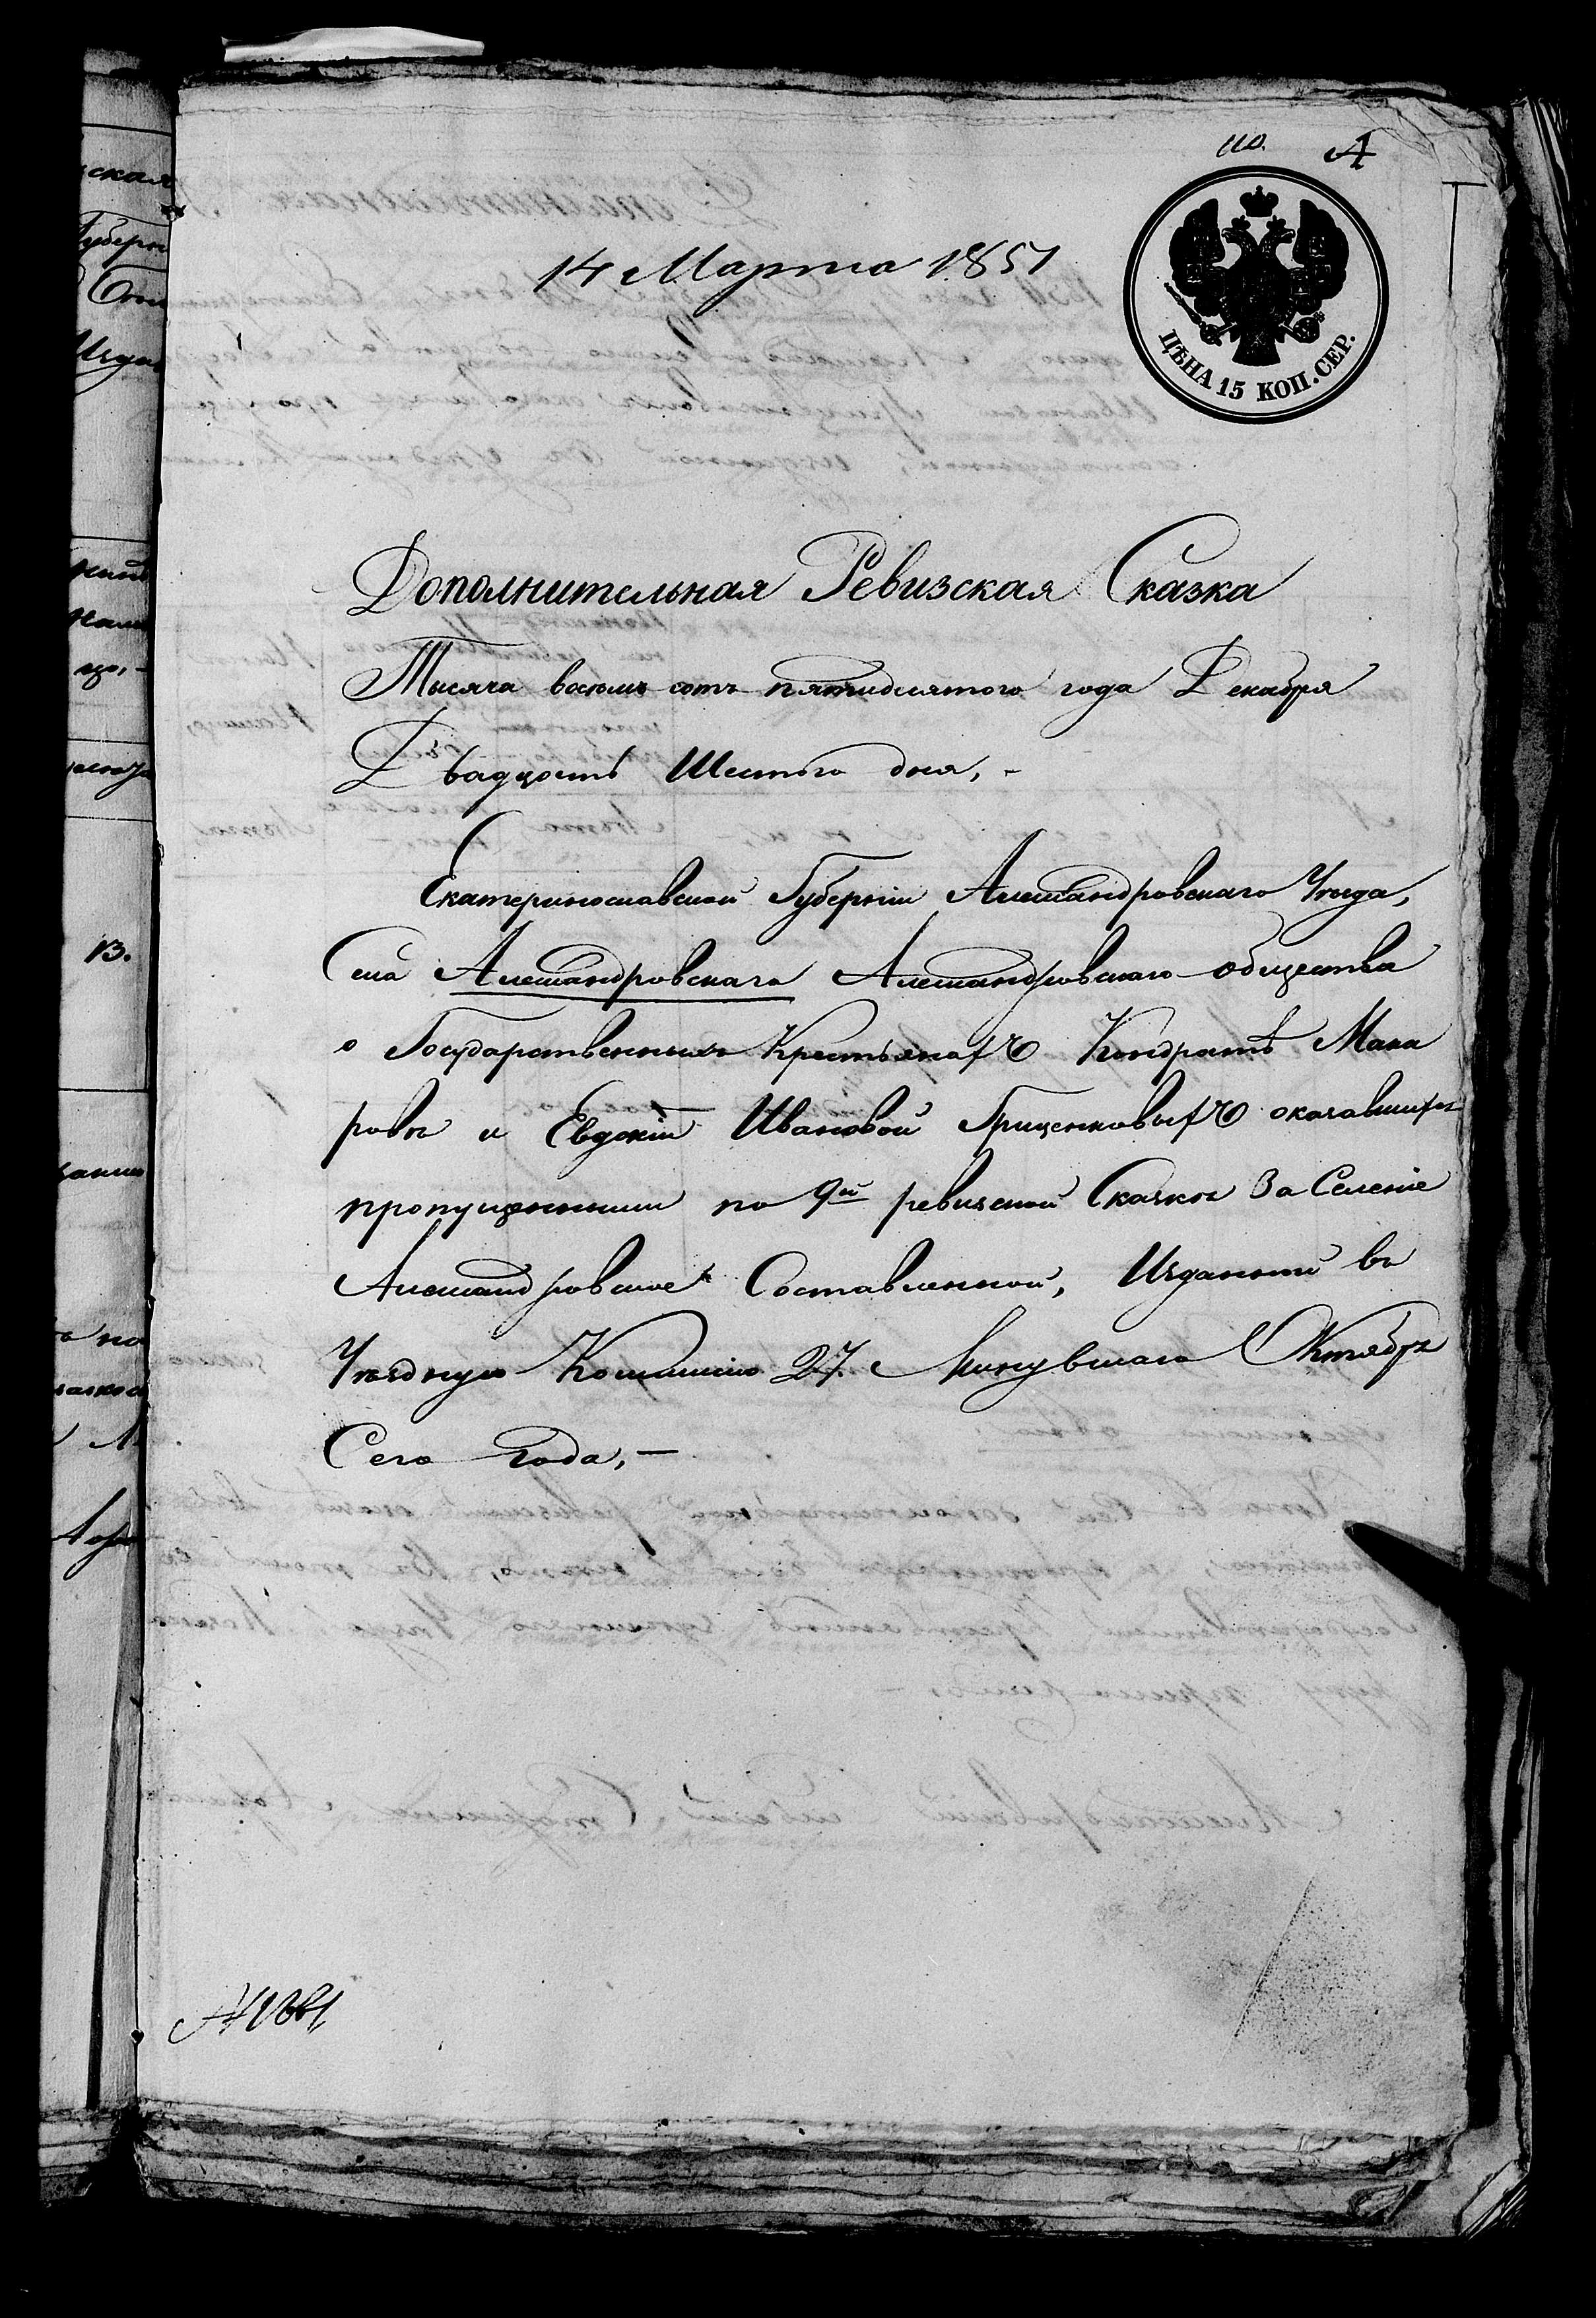 110. А
14 Марта 1851
ЦѢНА 15 КОП. СЕР.
Дополнительная Ревизская Сказка
Тысяча восемь сотъ пятидесятого года Декабря
Двадцать Шестого дня, -
Екатеринославской Губерніи Александровскаго Уѣзда,
Села Александровскаго Александровскаго общества
о Государственныхъ Крестьянахъ Кондратѣ Мака
рове и Евдокіи Ивановой Гриценковыхъ оказавшихся
пропущенными по 9й ревизской Сказки За Селеніе
Александровское Составленной, Изданной во
Уѣздную Комиссію 27. Минувшаго Октября
Сего года, —